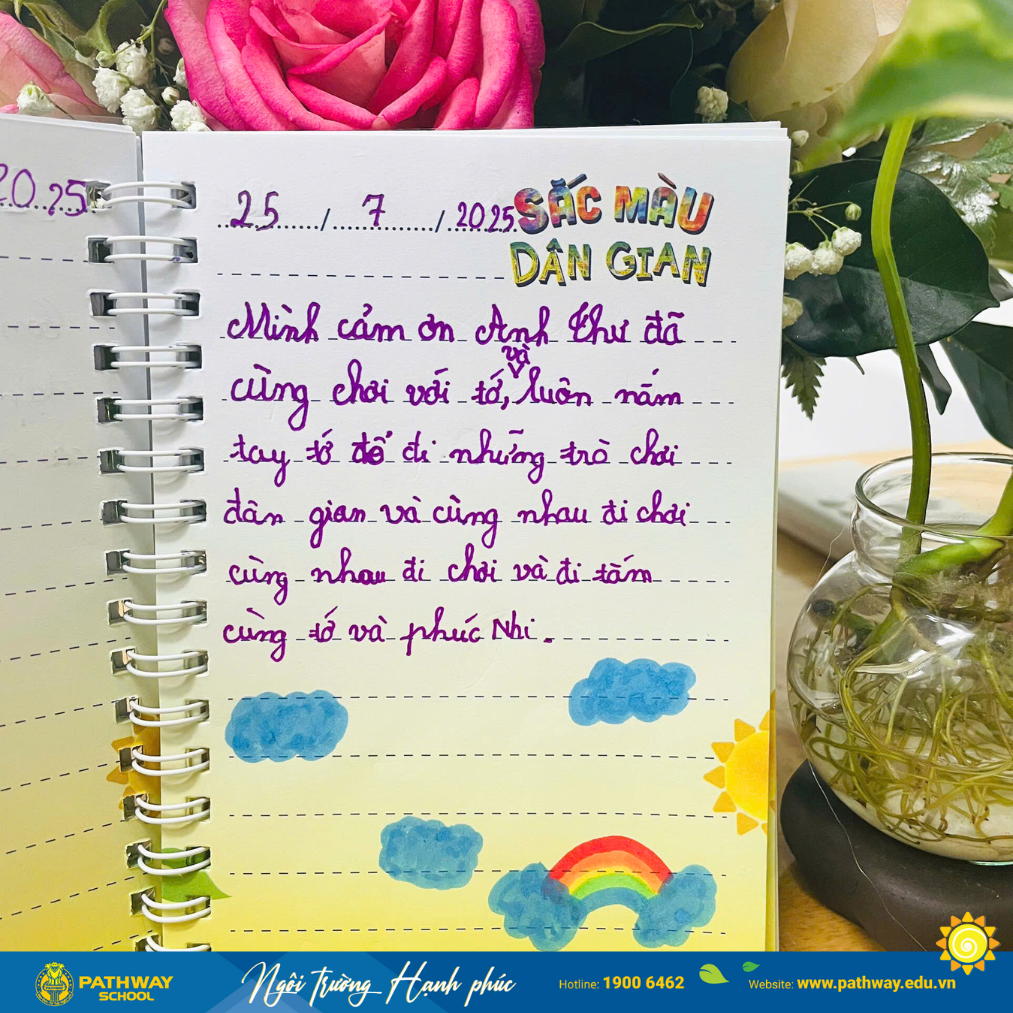 20.25
25 / 7 / 2025
SẮC MÀU
DÂN GIAN
Mình cảm ơn Anh Thư đã
và
cùng chơi với tớ, luôn nắm
tay tớ để đi những trò chơi
dân gian và cùng nhau đi chơi
cùng nhau đi chơi và đi tắm
cùng tớ và phúc Nhi.
PATHWAY
SCHOOL
Ngôi Trường Hạnh phúc
Hotline: 1900 6462
Website: www.pathway.edu.vn